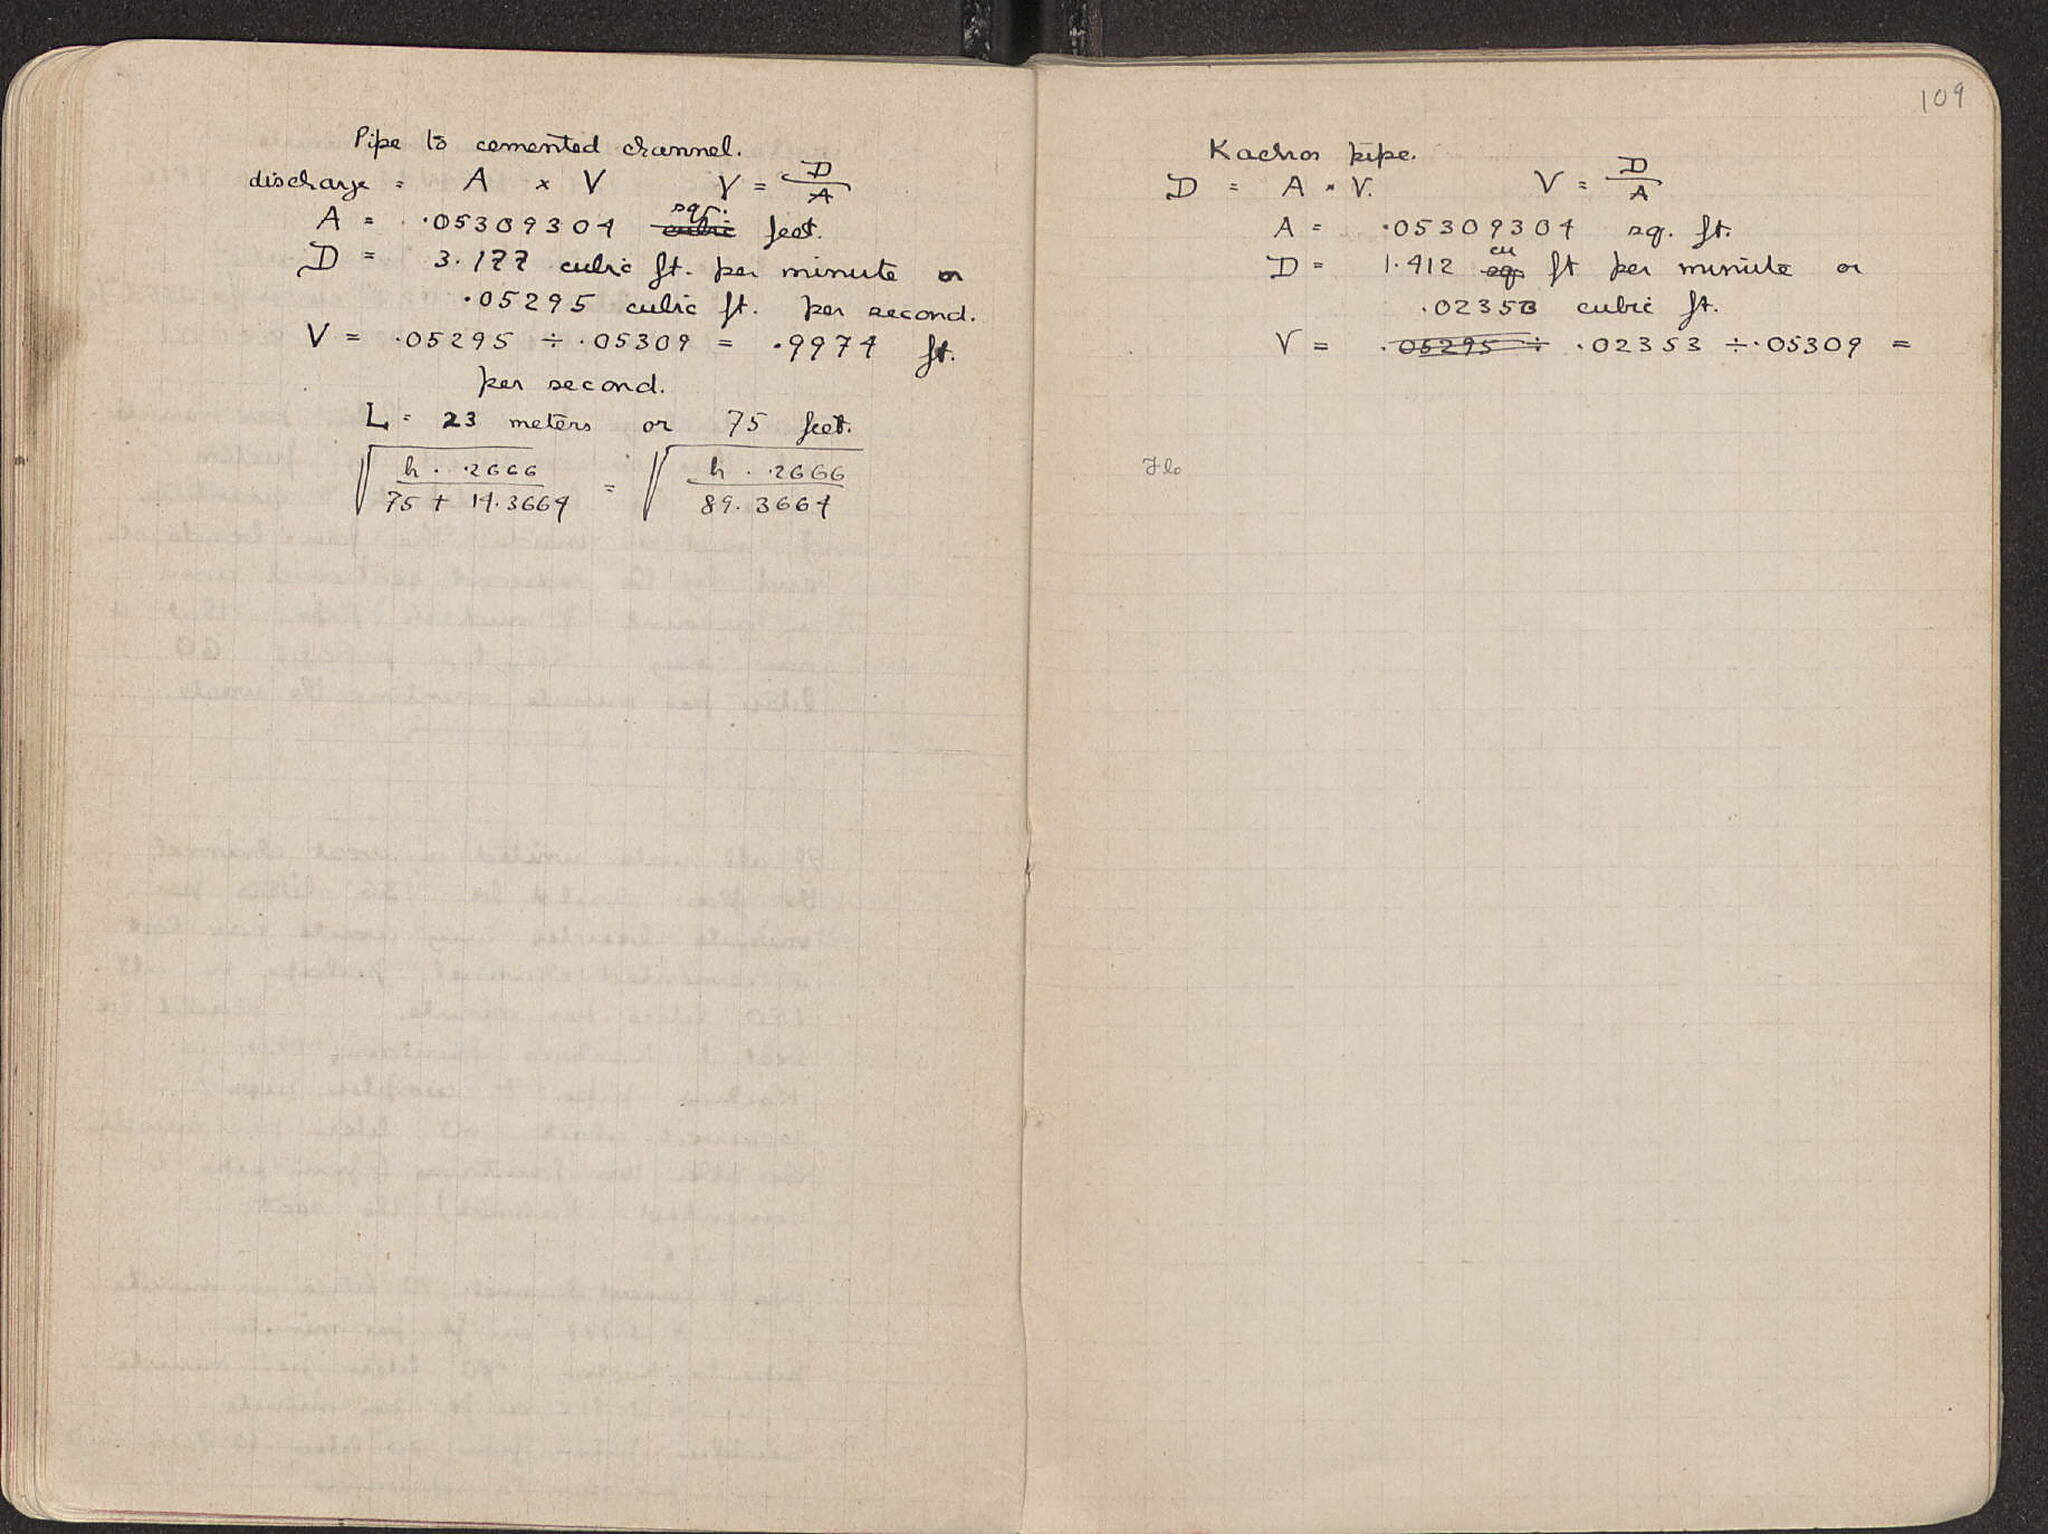 Pipe to cemented channel.
discharge = A × V V = D/A
A = .05309304 sq. cubic feet.
D = 3.177 cubic ft. per minute or
.05295 cubic ft. per second.
V = .05295 ÷ .05309 = .9974 ft.
per second.
L = 23 meters or 75 feet.
√(h . .2666 / 75 + 14.3664) = √(h . .2666 / 89.3664)
109
Kachros pipe.
D = A × V. V = D/A
A = .05309304 sq. ft.
D = 1.412 cu sq ft per minute or
.02353 cubic ft.
V = .05295 ÷ .02353 ÷ .05309 =
Flo